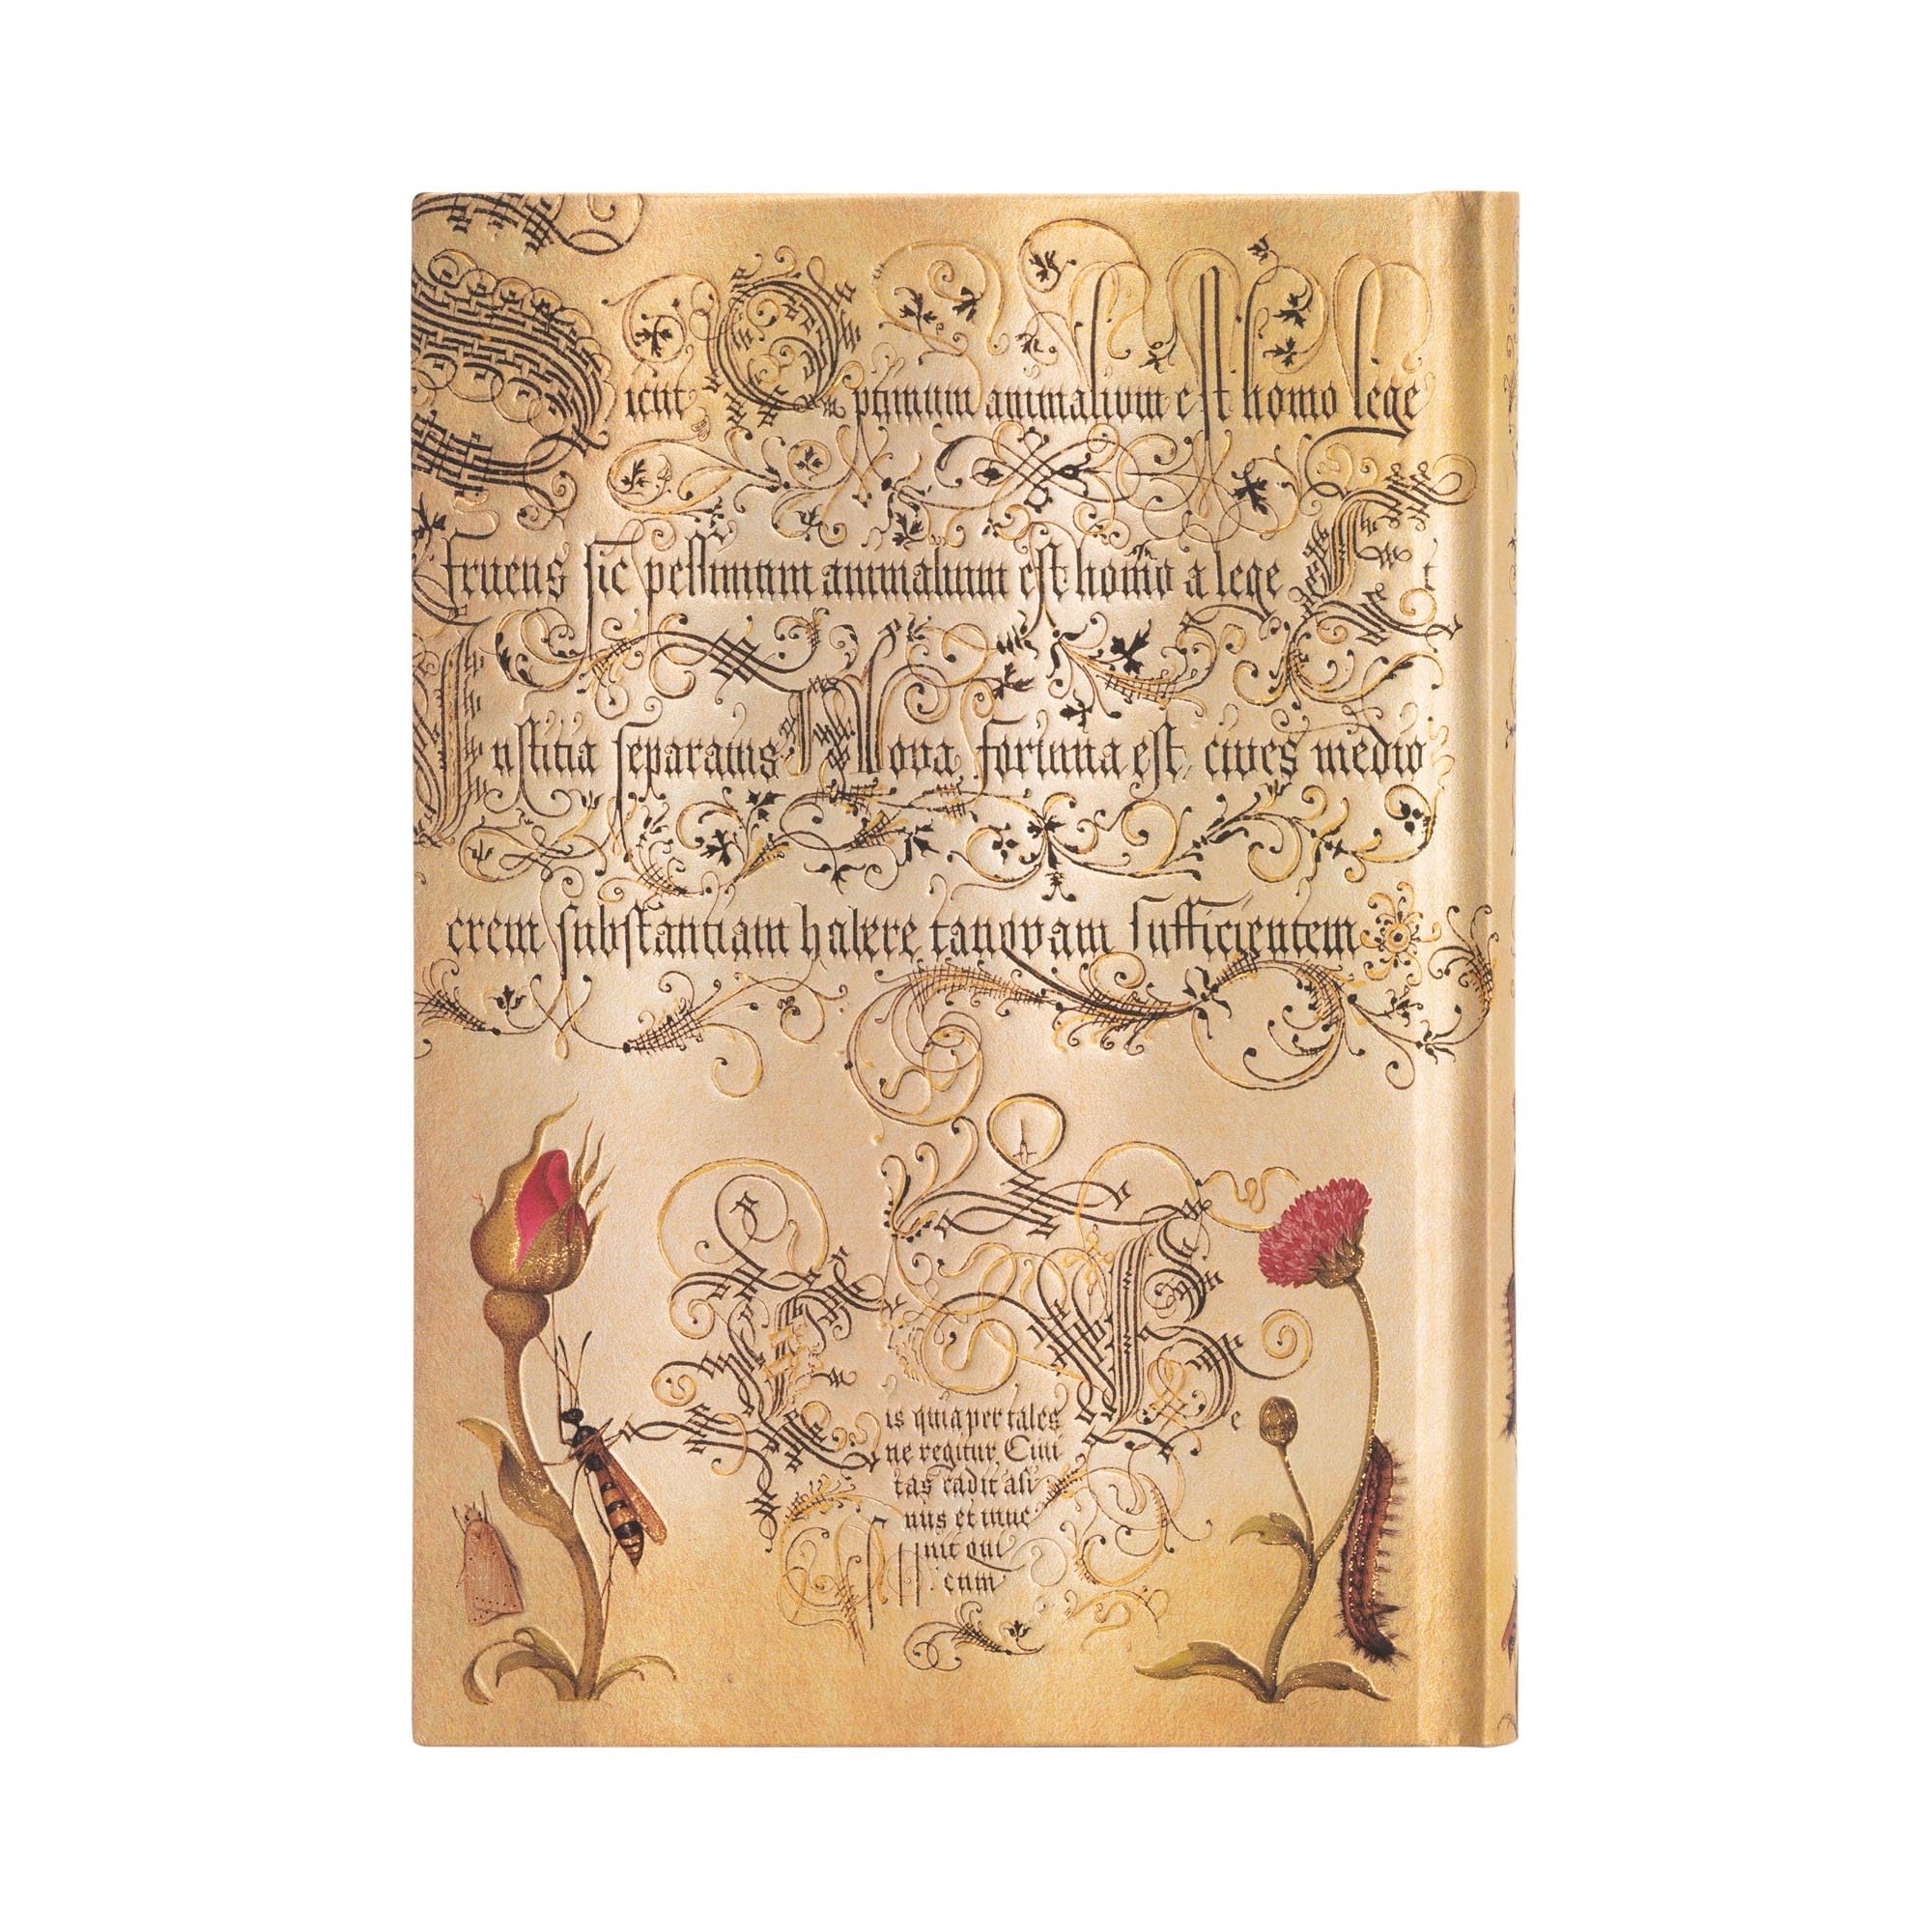 Sicut Optimum animalium est homo lege
fruens sic pessimum animalium est homo a lege Et
Iustitia separatus Nova fortuna est, cives medio
crem substantiam habere tanquam sufficientem
Eis quia per tales Be
ne regitur, Civi
tas cadit asi
nus et inue
nit qui
eum